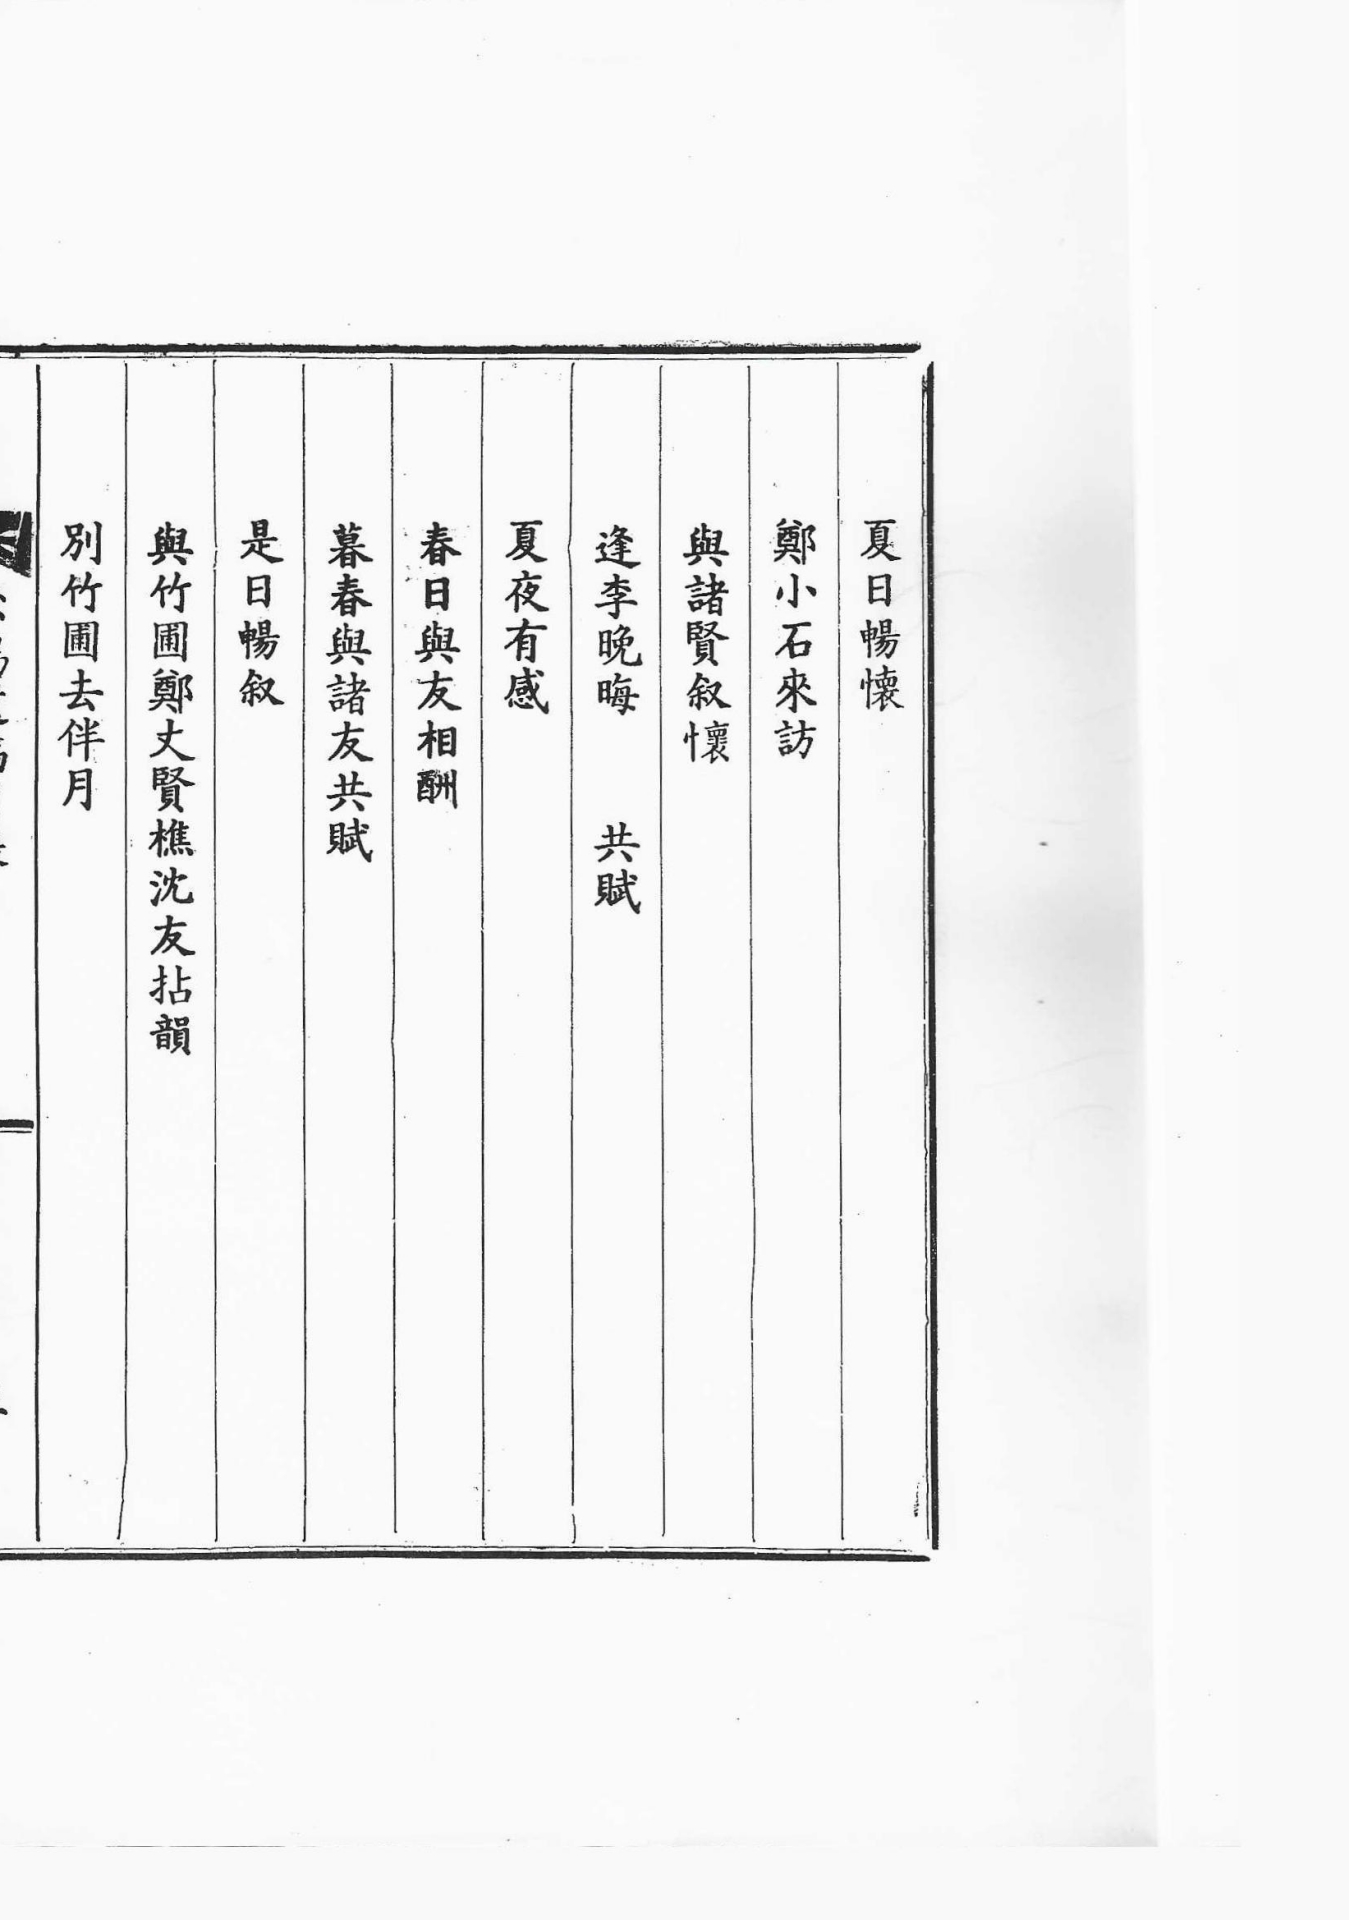 夏日暢懷
鄭小石來訪
與諸賢叙懷
逢李晚晦　　共賦
夏夜有感
春日與友相酬
暮春與諸友共賦
是日暢叙
與竹圃鄭丈賢樵沈友拈韻
別竹圃去伴月